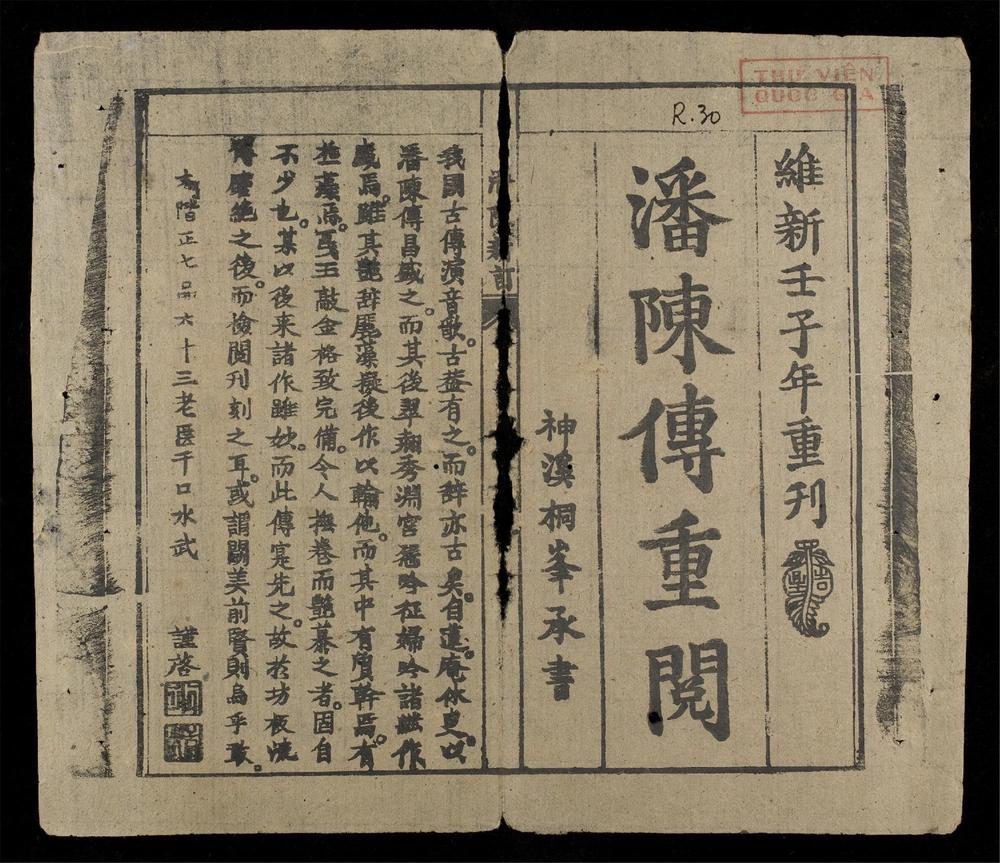 THƯ VIỆN
QUỐC GIA
R.30
維新壬子年重刊
潘陳傳重閱
神溪桐峯承書
我國古傳演音歌。古蓋有之。而辭亦古矣。自蓮庵休叟。以
潘陳傳昌盛之。而其後翠翹秀淵宮舊吟征婦吟諸繼作
焉。雖其艷辭麗藻。後作以輸他。而其中有質幹焉。有
焉。玉敲金格致完備。令人撫卷而艷慕之者。固自
不少也。某以後來諸作雖妙。而此傳寔先之。故於坊板
之後。而檢閱刊刻之耳。或謂關美前賢則烏乎敢。
本階正七品六十三老医千口水武 謹啓